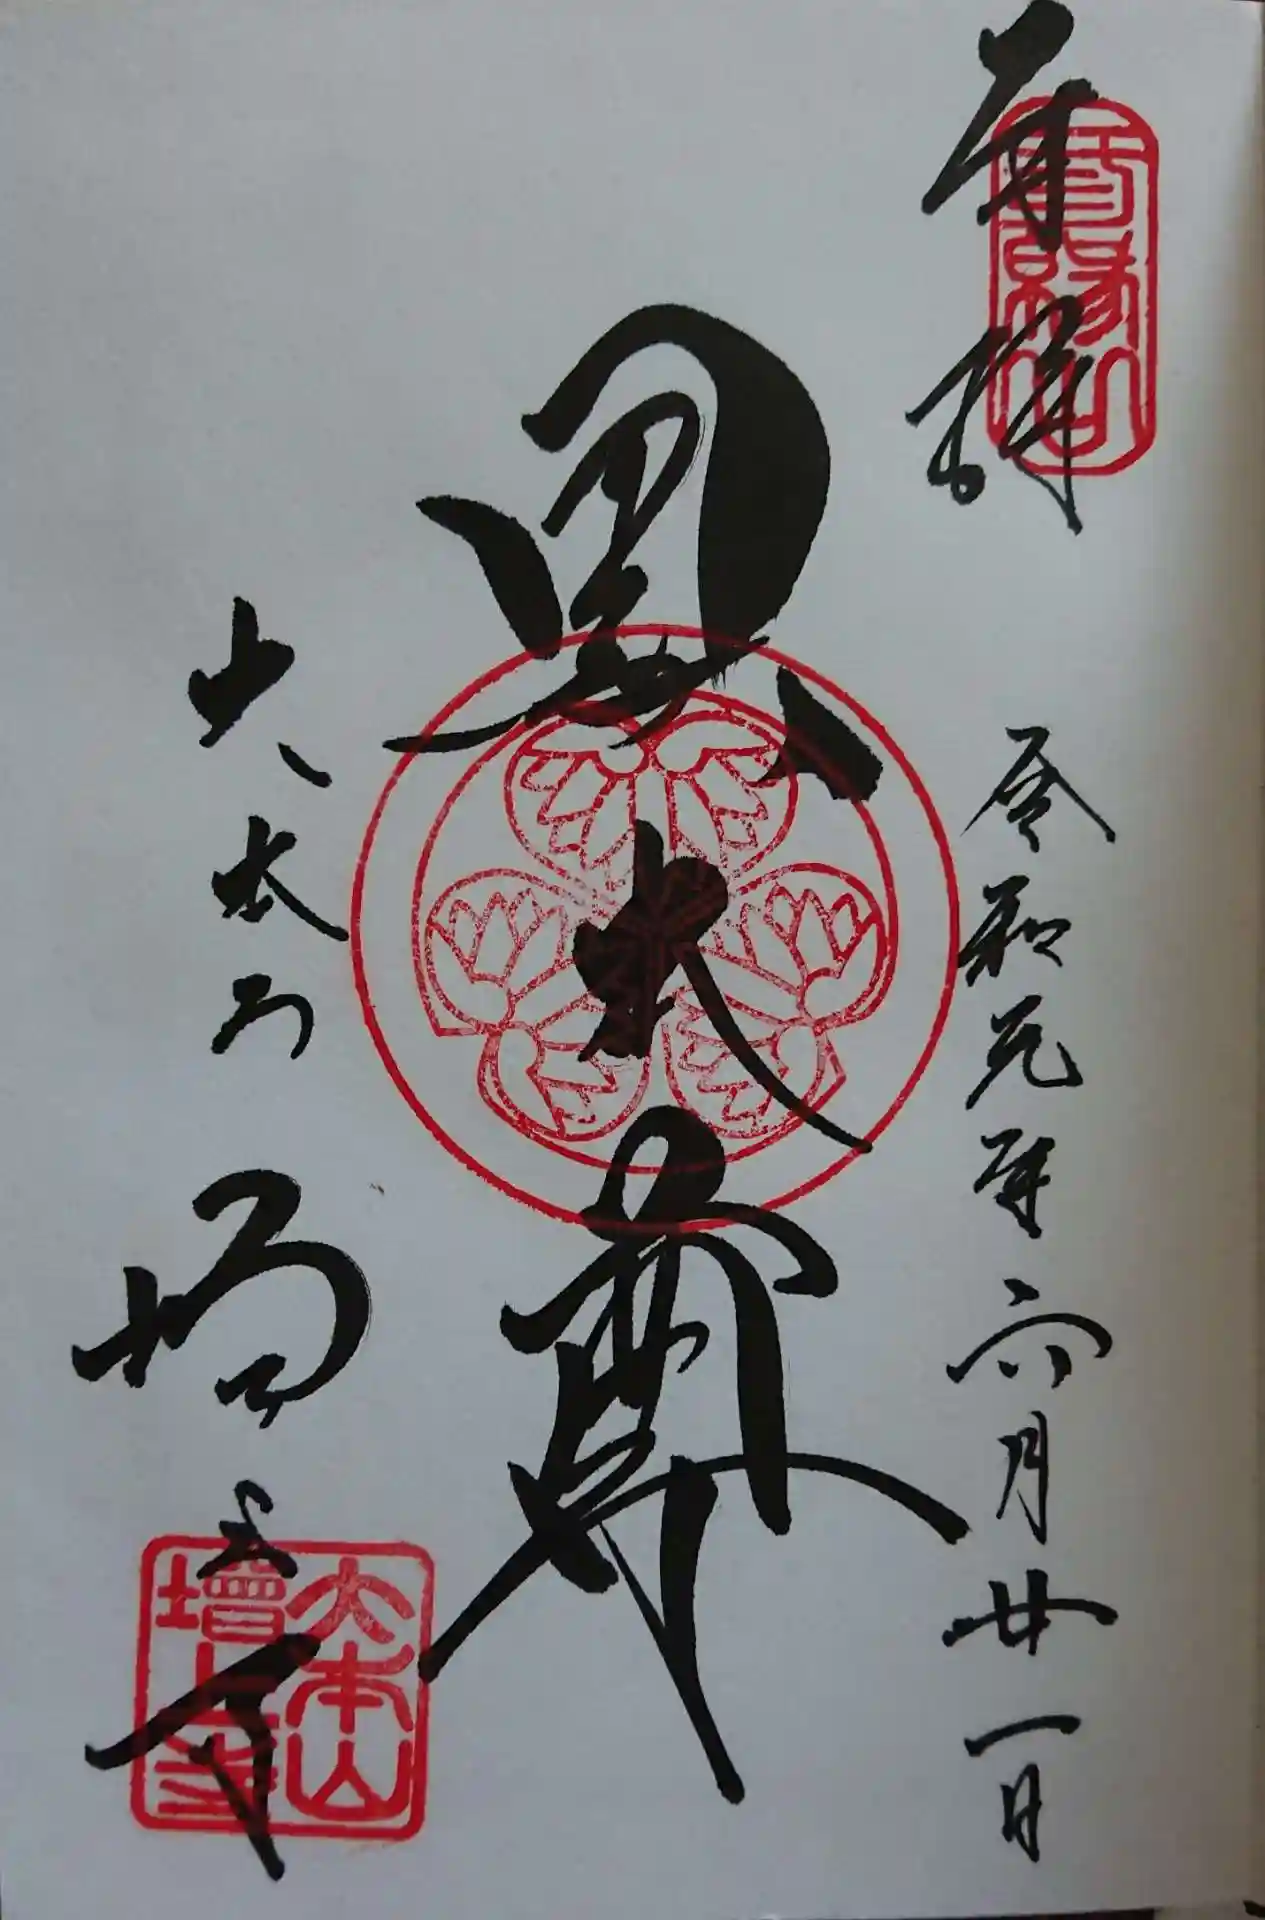 奉拝
三縁山
令和元年六月廿一日
黒本尊
大本山
増上寺
大本山
増上寺